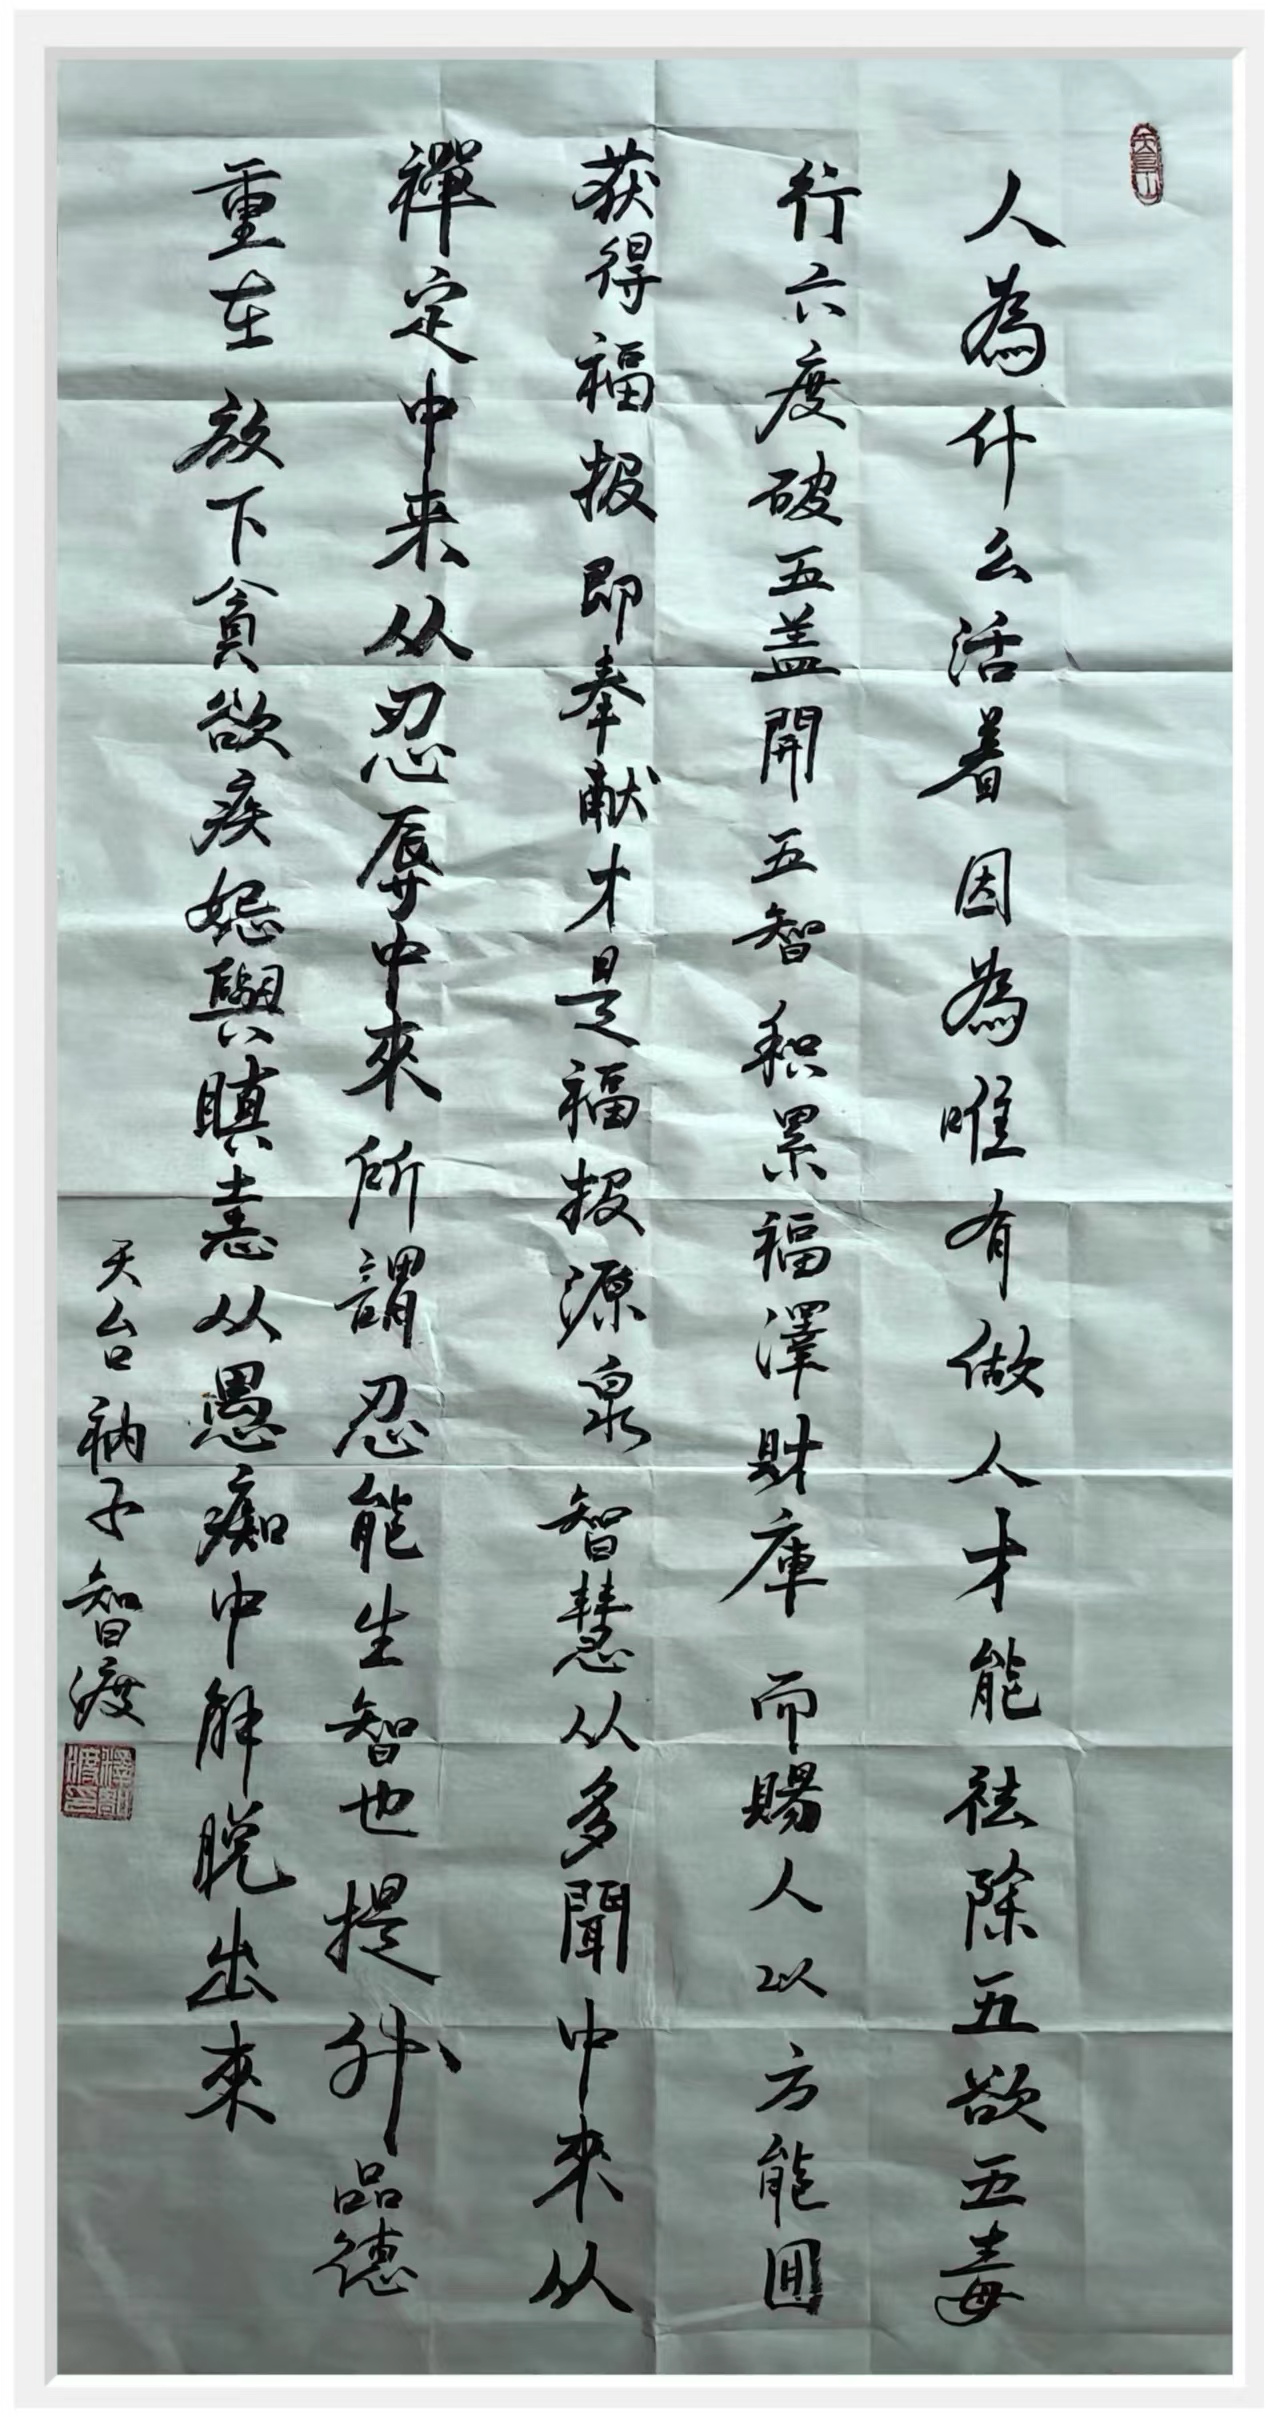 人為什么活着因為唯有做人才能祛除五欲五毒
行六度破五盖開五智积累福澤財庫而賜人以方能圓
获得福报即奉献才是福报源泉智慧从多聞中來从
禪定中来从忍辱中來所謂忍能生智也提升品德
重在放下貪欲疾怨與瞋恚从愚痴中解脱出來
天台衲子智渡